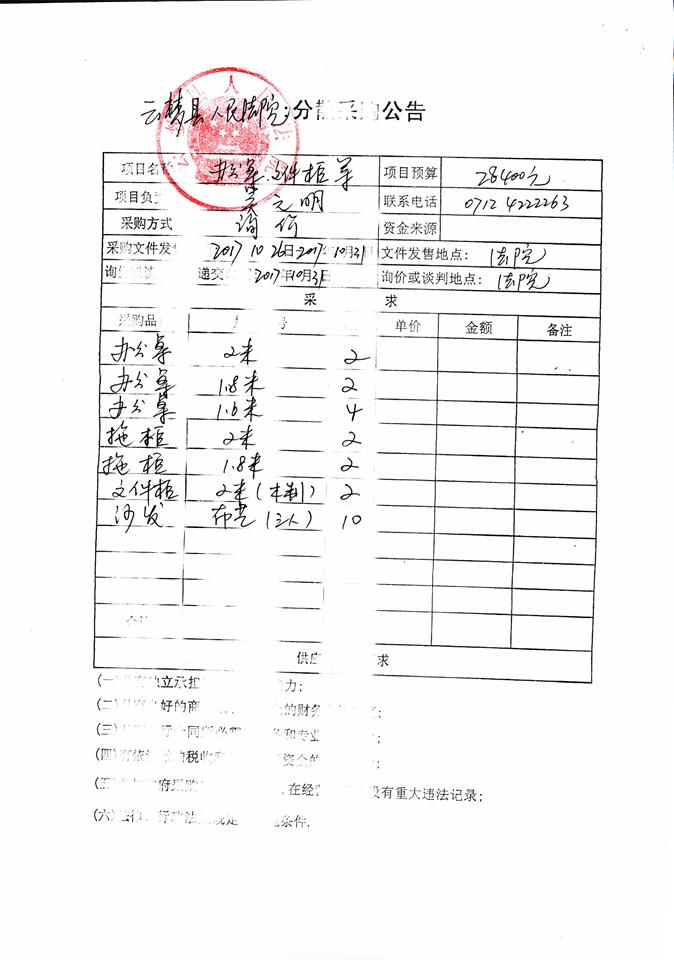 云梦县人民法院分散采购公告
项目名称 办公桌.文件柜等 项目预算 28400元
项目负 文明 联系电话 0712 4222263
采购方式 询价 资金来源
采购文件发 2017 10 26日-2017年10月31 文件发售地点: 法院
询 递交 2017年10月31日 询价或谈判地点: 法院
采 求
采购品 号 单价 金额 备注
办公桌 2米 2
办公桌 1.8米 2
办公桌 1.6米 4
拖柜 2米 2
拖柜 1.8米 2
文件柜 2米(木制) 2
沙发 布艺(三人) 10
合计
供应 求
(一) 独立承担 力;
(二) 好的商 的财务 ;
(三) 行合同所必需 和专业 ;
(四)有依 纳税收和 资金的 ;
(五) 府采购 ,在经营 没有重大违法记录;
(六)法律、行政法规规定 条件.